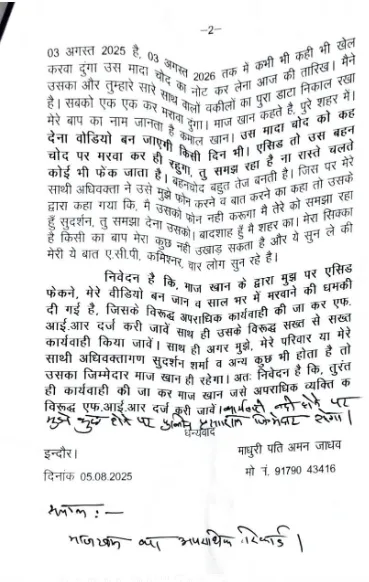 –2–
03 अगस्त 2025 है, 03 अगस्त 2026 तक में कभी भी कही भी खेल
करवा दुंगा उस मादा चोद का नोट कर लेना आज की तारिख। मैने
उसका और तुम्हारे सारे साथ वालों वकीलों का पुरा डाटा निकाल रखा
है। सबको एक एक कर मरावा दुंगा। माज खान कहते है, पुरे शहर में।
मेरे बाप का नाम जानता है कमाल खान। उस मादा चोद को कह
देना वोडियो बन जाएगी किसी दिन भी। एसिड तो उस बहन
चोद पर मरवा कर ही रहुगा, तु समझ रहा है ना रास्ते चलते
कोई भी फेंक जाता है। बहनचोद बहुत तेज बनती है। जिस पर मेरे
साथी अधिवक्ता ने उसे मुझे फोन करने व बात करने का कहा तो उसके
द्वारा कहा गया कि, मै उसको फोन नही करूगा मै तेरे को समझा रहा
हुँ सुदर्शन, तु समझा देना उसको। बादशाह हुँ मै शहर का। मेरा सिक्का
है किसी का बाप मेरा कुछ नही उखाड़ सकता है और ये सुन ले की
मेरी ये बात ए.सी.पी, कमिश्नर, चार लोग सुन रहे है।
निवेदन है कि, माज खान के द्वारा मुझ पर एसिड
फेकने, मेरे वीडियो बन जान व साल भर में मरवाने की धमकी
दी गई है, जिसके विरूद्ध अपराधिक कार्यवाही की जा कर एफ.
आई.आर दर्ज करी जावें साथ ही उसके विरूद्ध सख्त से सख्त
कार्यवाही किया जावें। साथ ही अगर मुझे, मेरे परिवार या मेरे
साथी अधिवक्तागण सुदर्शन शर्मा व अन्य कुछ भी होता है तो
उसका जिम्मेदार माज खान ही रहेगा। अतः निवेदन है कि, तुरंत
ही कार्यवाही की जा कर माज खान जसे अपराधिक व्यक्ति क
विरूद्ध एफ.आई.आर दर्ज करी जावें। कार्यवाही नही होने पर
मुझे कुछ होने पर पुलिस प्रशासन जिम्मेदार रहेगा।
धन्यवाद
इन्दौर।
माधुरी पति अमन जाधव
दिनांक 05.08.2025
मो नं. 91790 43416
संलग्न :–
माजखान का अपराधिक रिकार्ड।